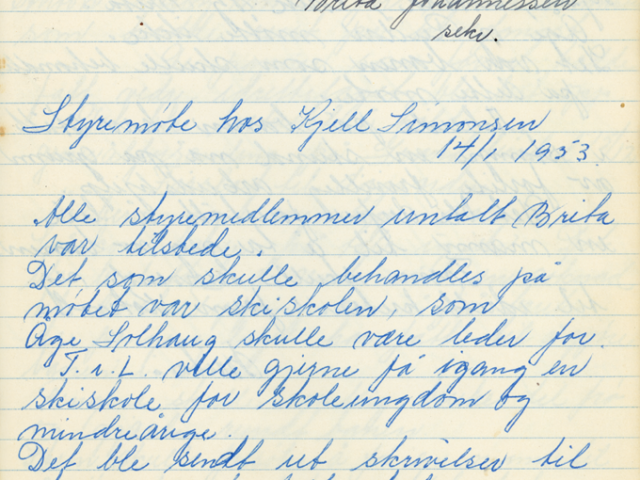 Brita Johannessen
sekr.
Styremöte hos Kjell Simonsen
14/1 1953.
Alle styremedlemmer untatt Brita
var tilstede.
Det som skulle behandles på
møtet var skiskolen, som
Åge Solhaug skulle være leder for.
T. i. L. ville gjerne få igang en
skiskole for skoleungdom og
mindreårige.
Det ble sendt ut skrivelser til